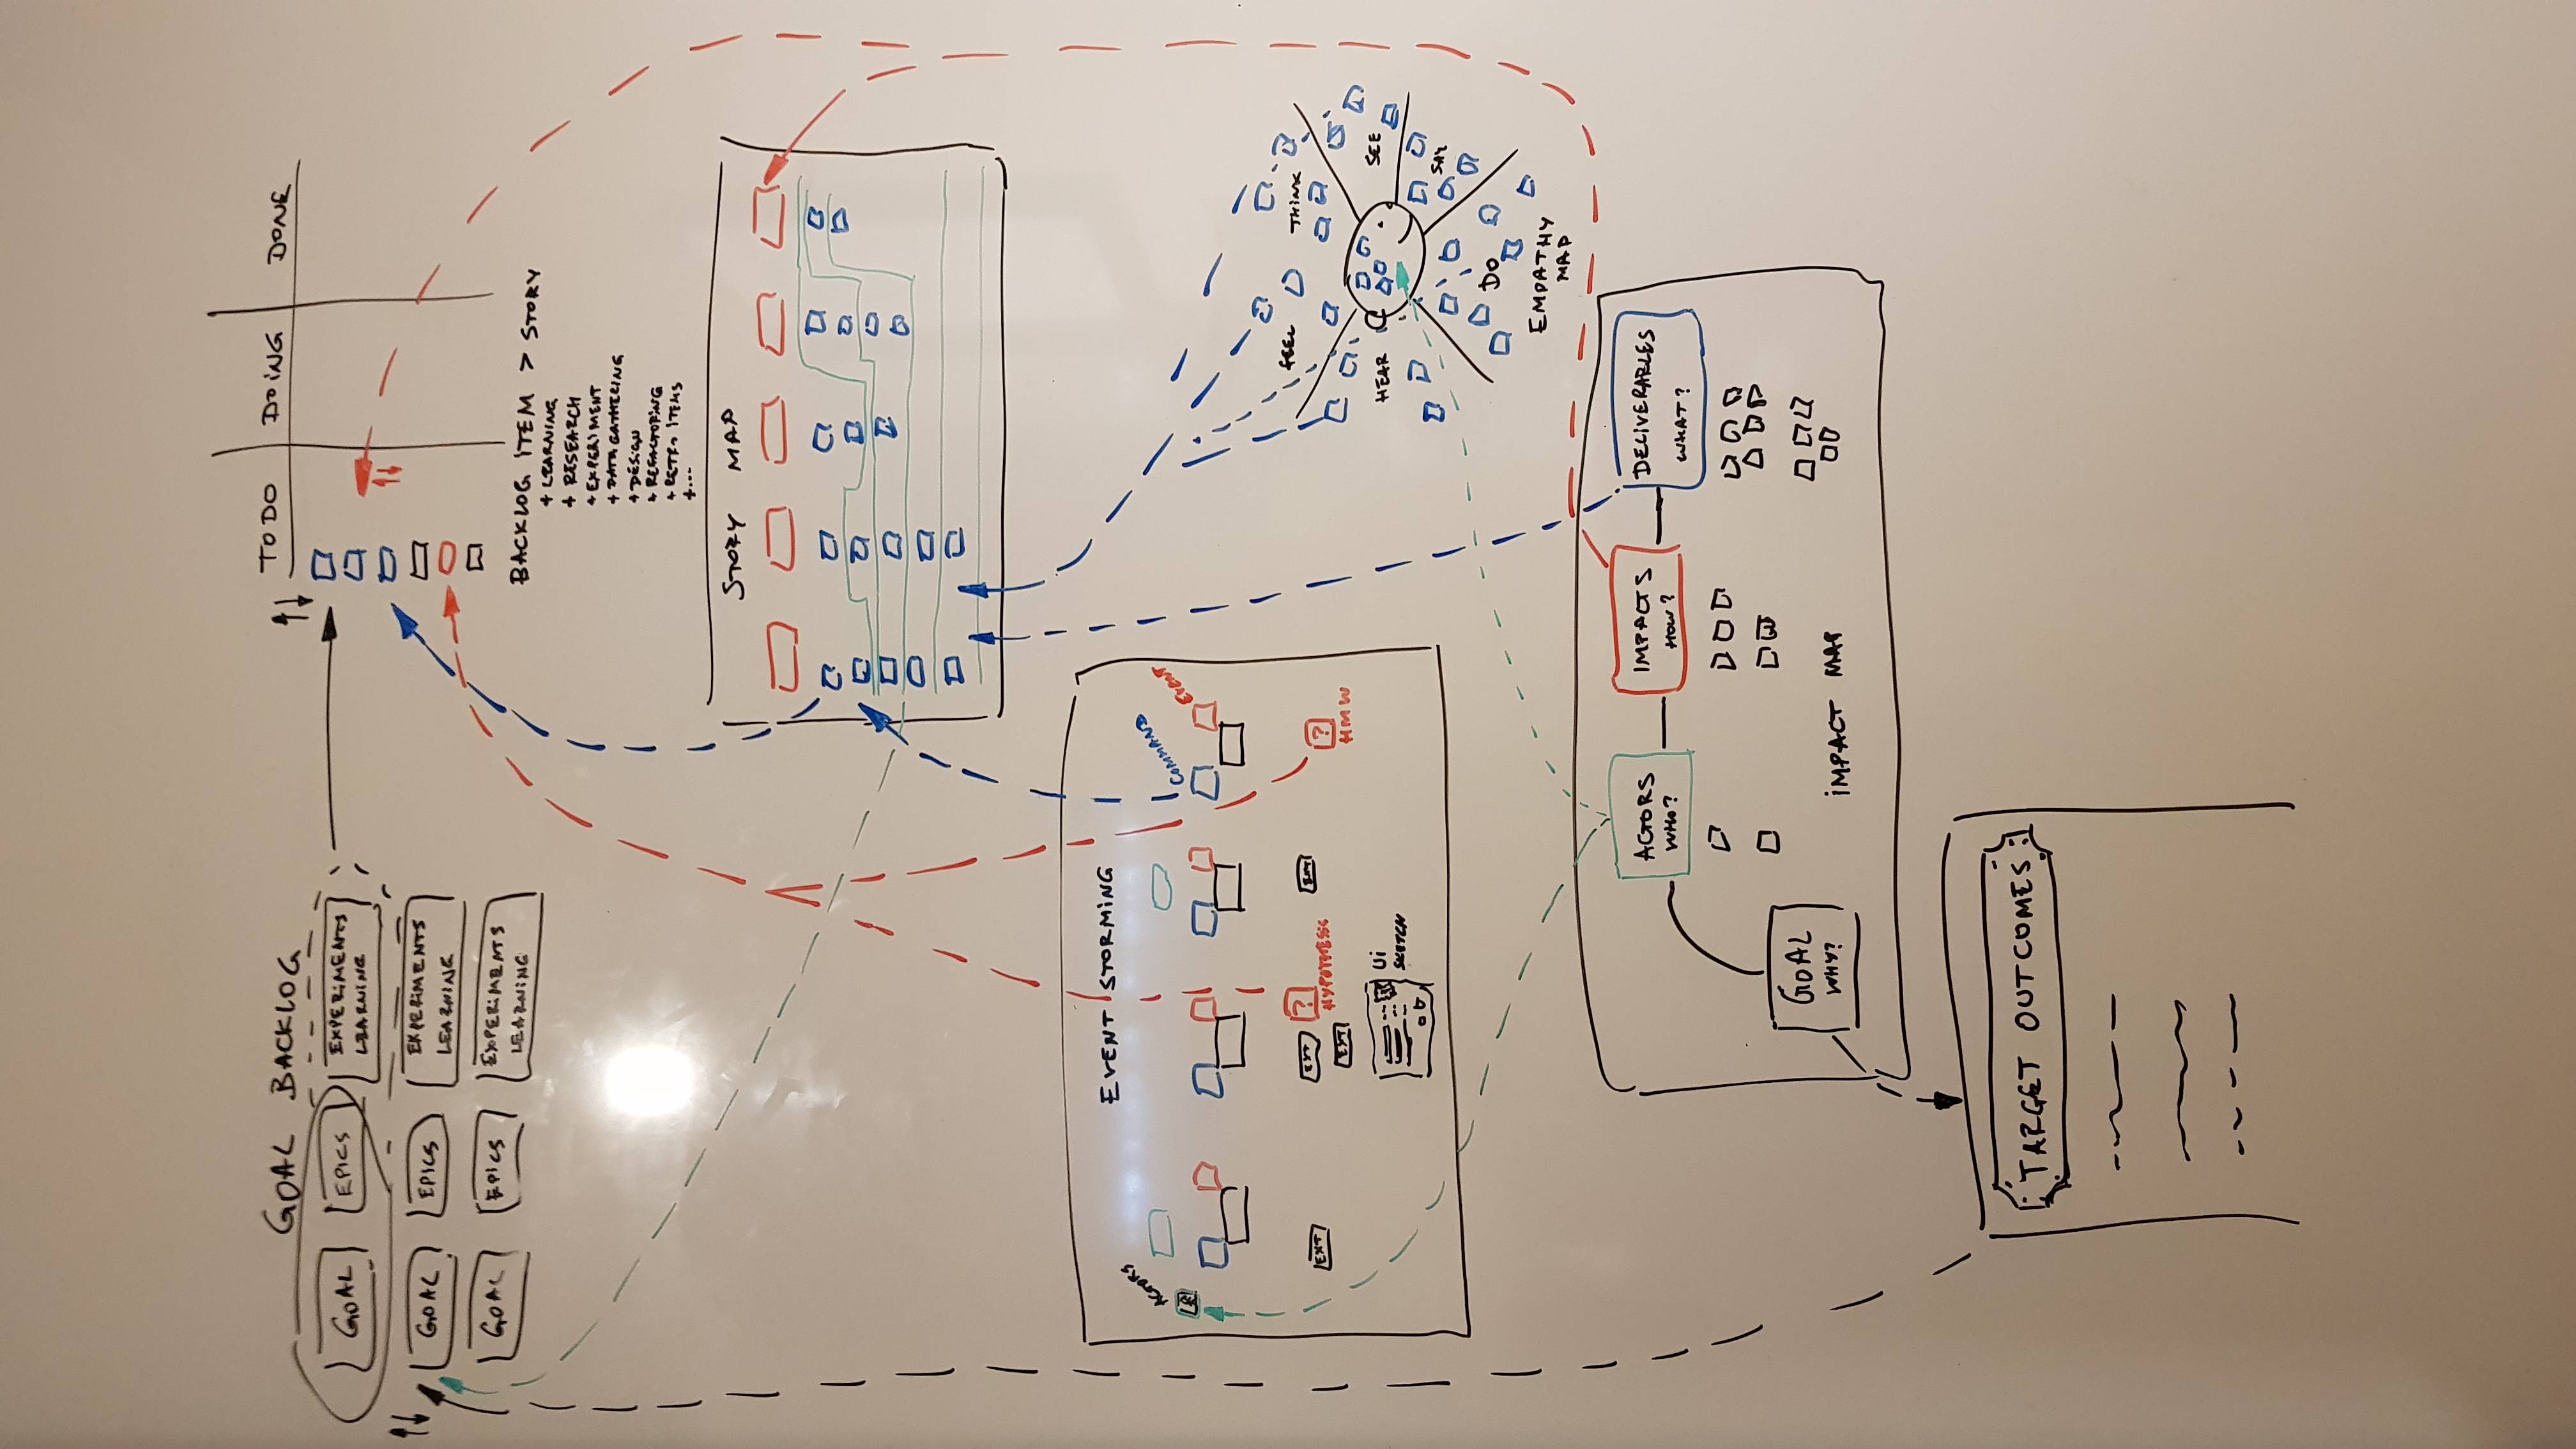 GOAL BACKLOG
GOAL EPICS EXPERIMENTS
LEARNING
GOAL EPICS EXPERIMENTS
LEARNING
GOAL EPICS EXPERIMENTS
LEARNING
TODO DOING DONE
BACKLOG ITEM > STORY
+ LEARNING
+ RESEARCH
+ EXPERIMENT
+ DATA GATHERING
+ DESIGN
+ REFACTORING
+ RETRO ITEMS
+...
STORY MAP
EVENT STORMING
ACTORS
COMMAND
EVENT
EXT
EXT
EXT
EXT
?
HYPOTHESIS
?
HMW
UI
SKETCH
FEEL
THINK
HEAR
SEE
SAY
DO
EMPATHY
MAP
ACTORS
WHO?
IMPACTS
HOW?
DELIVERABLES
WHAT?
GOAL
WHY?
IMPACT MAP
TARGET OUTCOMES